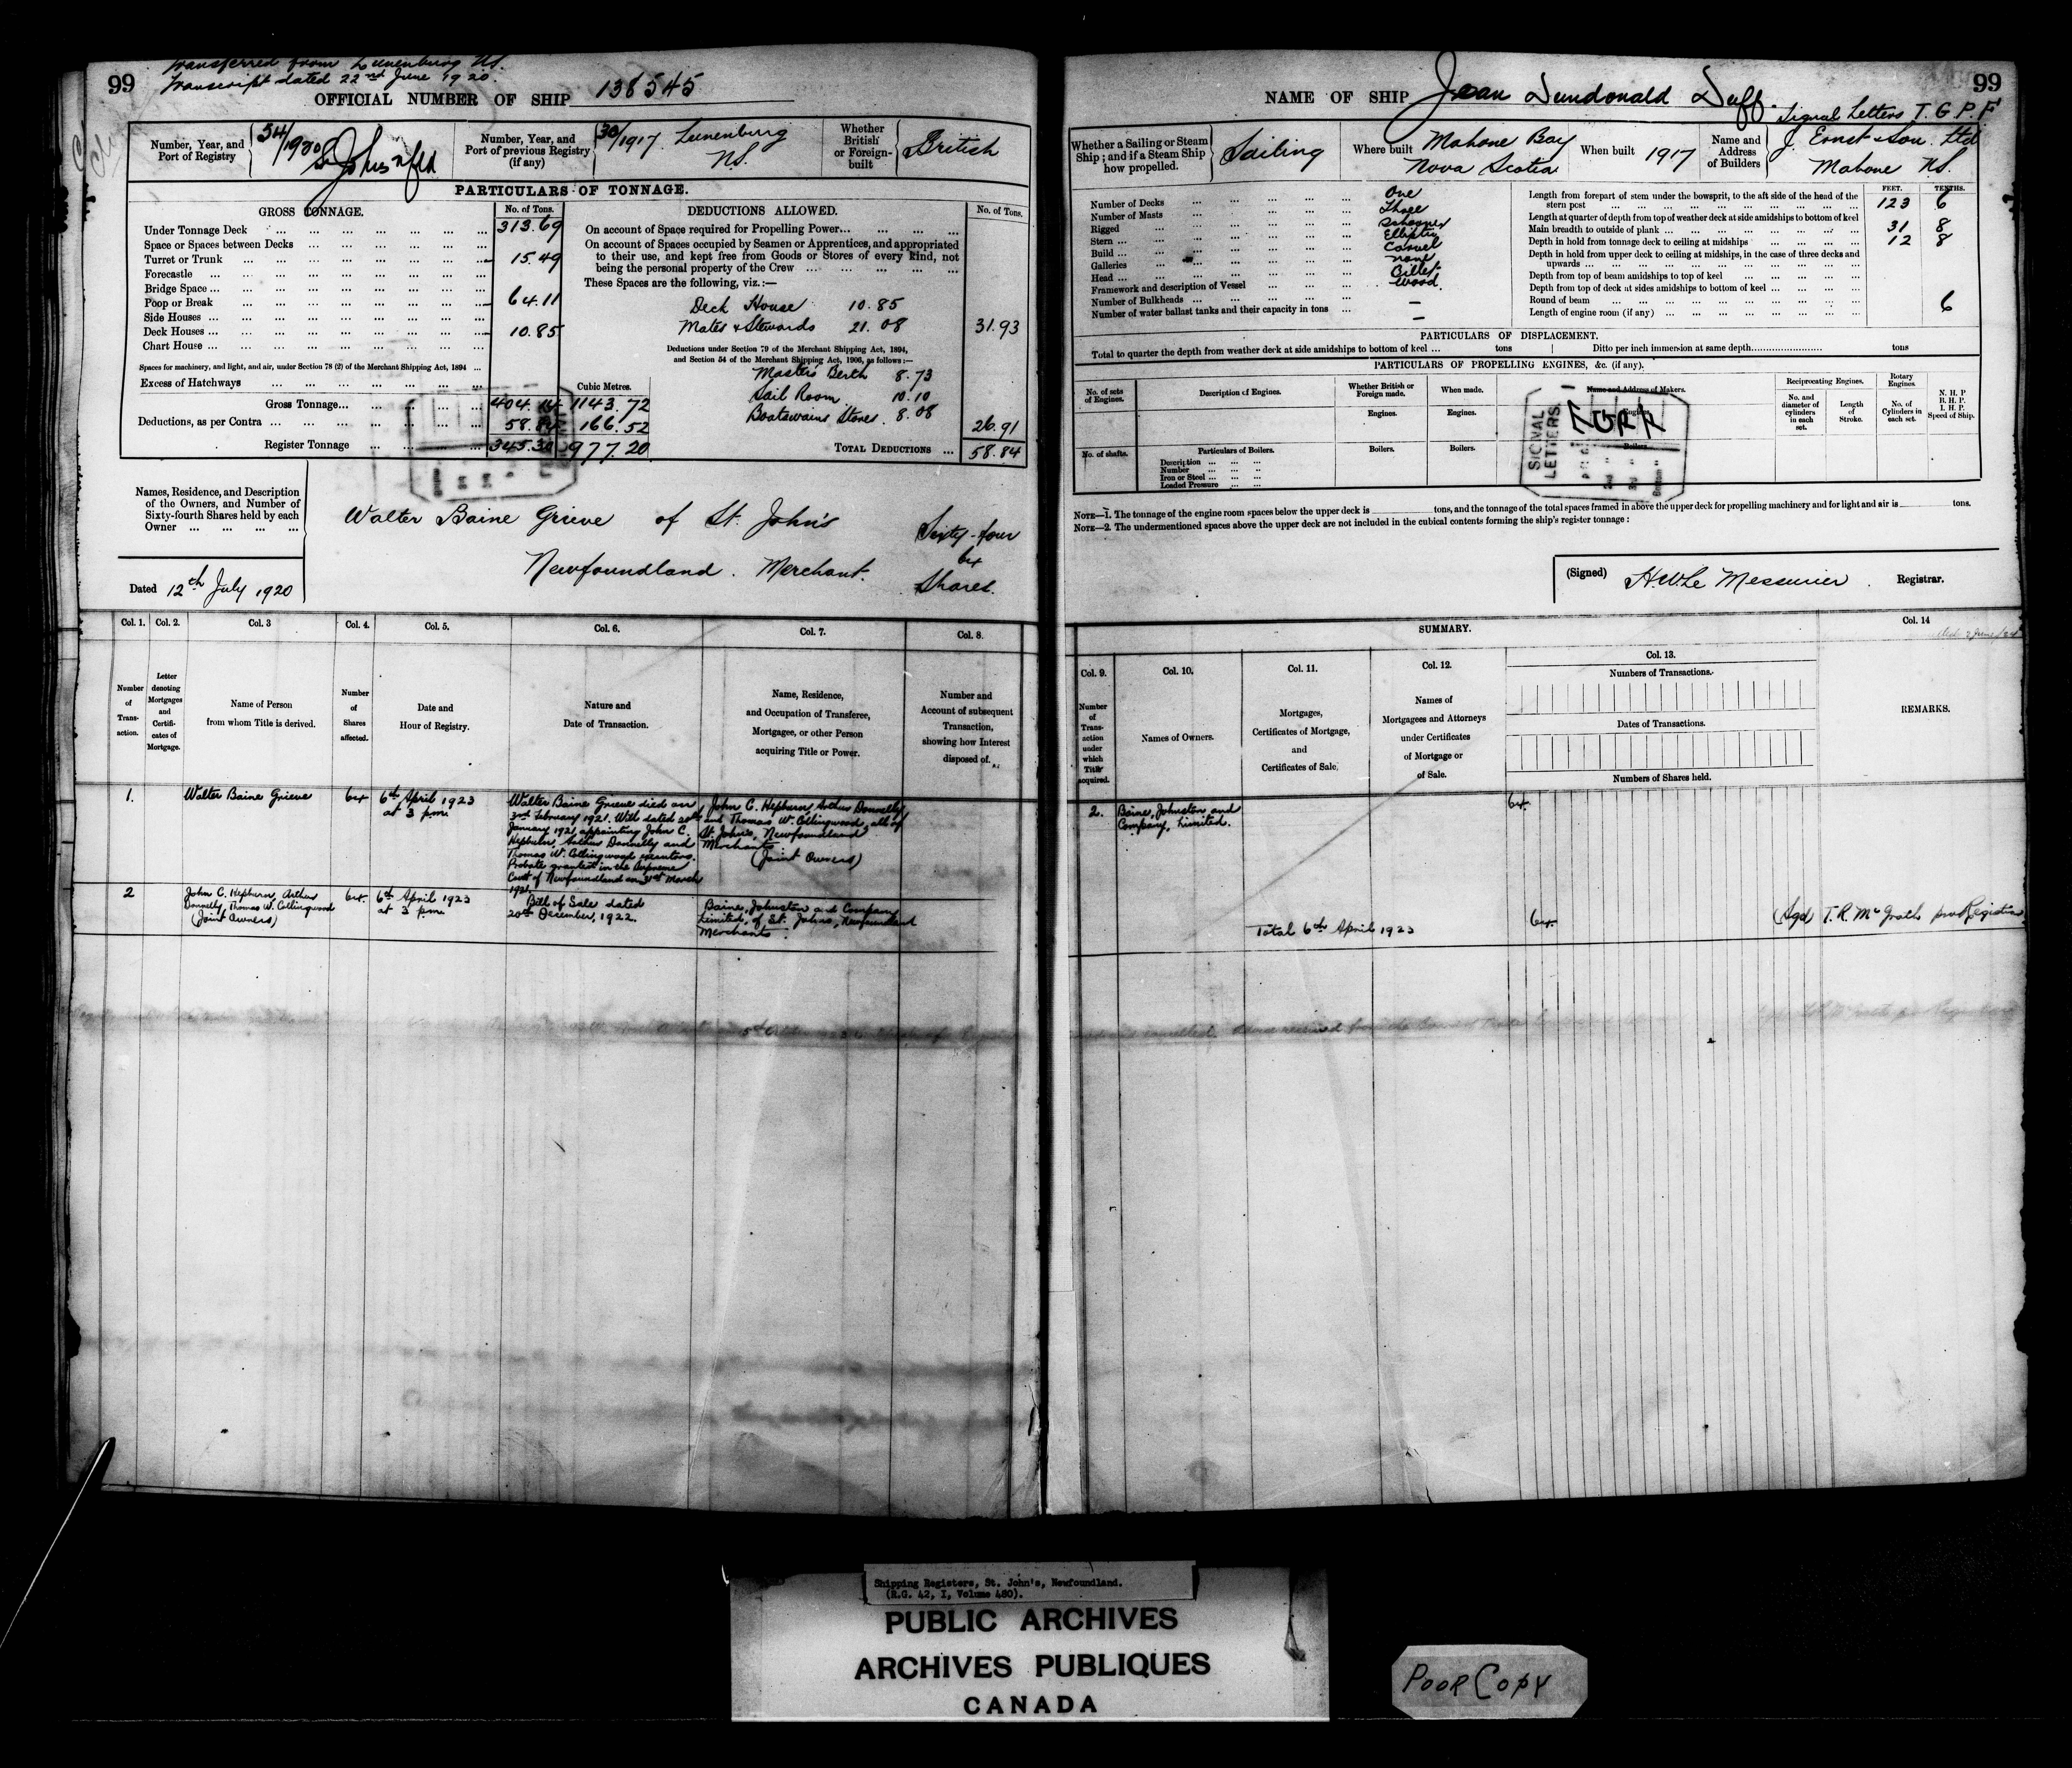 99
Transferred from Lunenburg NS.
Transcript dated 22nd June 1920.
OFFICIAL NUMBER OF SHIP 138545
Number, Year, and Port of Registry
54/1920 St. Johns Nfld
Number, Year, and Port of previous Registry (if any)
30/1917. Lunenburg NS.
Whether British or Foreign-built
British
PARTICULARS OF TONNAGE.
GROSS TONNAGE. No. of Tons.
Under Tonnage Deck 313.69
Space or Spaces between Decks
Turret or Trunk 15.49
Forecastle
Bridge Space
Poop or Break 64.11
Side Houses
Deck Houses 10.85
Chart House
Spaces for machinery, and light, and air, under Section 78 (2) of the Merchant Shipping Act, 1894
Excess of Hatchways
Cubic Metres.
Gross Tonnage 404.14 1143.72
Deductions, as per Contra 58.84 166.52
Register Tonnage 345.30 977.20
DEDUCTIONS ALLOWED. No. of Tons.
On account of Space required for Propelling Power
On account of Spaces occupied by Seamen or Apprentices, and appropriated
to their use, and kept free from Goods or Stores of every kind, not
being the personal property of the Crew
These Spaces are the following, viz.:—
Deck House 10.85
Mates & Stewards 21.08 31.93
Deductions under Section 79 of the Merchant Shipping Act, 1894,
and Section 54 of the Merchant Shipping Act, 1906, as follows:—
Masters Berth 8.73
Sail Room 10.10
Boatswains Stores. 8.08 26.91
TOTAL DEDUCTIONS 58.84
Names, Residence, and Description
of the Owners, and Number of
Sixty-fourth Shares held by each
Owner
Walter Baine Grieve of St. John's
Newfoundland. Merchant.
Sixty-four
64
Shares.
Dated 12th July 1920
Col. 1. Col. 2. Col. 3 Col. 4. Col. 5. Col. 6. Col. 7. Col. 8.
Number of Transaction.
Letter denoting Mortgages and Certificates of Mortgage.
Name of Person from whom Title is derived.
Number of Shares affected.
Date and Hour of Registry.
Nature and Date of Transaction.
Name, Residence, and Occupation of Transferee, Mortgagee, or other Person acquiring Title or Power.
Number and Account of subsequent Transaction, showing how Interest disposed of.
1. Walter Baine Grieve 64 6th April 1923 at 3 p.m.
Walter Baine Grieve died on
3rd February 1921. Will dated 20th
January 1921, appointing John C.
Hepburn, Arthur Donnelly and
Thomas W. Collingwood executors.
Probate granted in the Supreme
Court of Newfoundland on 31st March
1921.
John C. Hepburn, Arthur Donnelly
and Thomas W. Collingwood, all of
St. John's, Newfoundland
Merchants
(Joint Owners)
2 John C. Hepburn, Arthur
Donnelly, Thomas W. Collingwood
(Joint Owners)
64. 6th April 1923
at 3 p.m.
Bill of Sale dated
20th December, 1922.
Baine, Johnston and Company
Limited, of St. Johns, Newfoundland
Merchants.
99
NAME OF SHIP Jean Dundonald Duff.
Signal Letters T. G. P. F
Whether a Sailing or Steam Ship; and if a Steam Ship how propelled.
Sailing
Where built Mahone Bay Nova Scotia
When built 1917
Name and Address of Builders
J. Ernst & Son. Ltd
Mahone NS.
Number of Decks One
Number of Masts Three
Rigged Schooner
Stern Elliptic
Build Carvel
Galleries none
Head Billet
Framework and description of Vessel Wood.
Number of Bulkheads —
Number of water ballast tanks and their capacity in tons —
FEET. TENTHS.
Length from forepart of stem under the bowsprit, to the aft side of the head of the
stern post 123 6
Length at quarter of depth from top of weather deck at side amidships to bottom of keel
Main breadth to outside of plank 31 8
Depth in hold from tonnage deck to ceiling at midships 12 8
Depth in hold from upper deck to ceiling at midships, in the case of three decks and
upwards
Depth from top of beam amidships to top of keel
Depth from top of deck at sides amidships to bottom of keel
Round of beam 6
Length of engine room (if any)
PARTICULARS OF DISPLACEMENT.
Total to quarter the depth from weather deck at side amidships to bottom of keel tons
Ditto per inch immersion at same depth tons
PARTICULARS OF PROPELLING ENGINES, &c. (if any).
No. of sets of Engines.
Description of Engines.
Whether British or Foreign made.
When made.
Name and Address of Makers.
Reciprocating Engines.
Rotary Engines.
N. H. P
B. H. P.
I. H. P.
Speed of Ship.
No. and diameter of cylinders in each set.
Length of Stroke.
No. of Cylinders in each set.
Engines. Engines. Engines.
No. of shafts.
Particulars of Boilers.
Boilers. Boilers. Boilers.
Description
Number
Iron or Steel
Loaded Pressure
SIGNAL LETTERS
NOTE—1. The tonnage of the engine room spaces below the upper deck is tons, and the tonnage of the total spaces framed in above the upper deck for propelling machinery and for light and air is tons.
NOTE—2. The undermentioned spaces above the upper deck are not included in the cubical contents forming the ship's register tonnage:
(Signed) H.W. Le Messurier. Registrar.
SUMMARY.
Col. 14
Col. 9. Col. 10. Col. 11. Col. 12. Col. 13.
Number of Transaction under which Title acquired.
Names of Owners.
Mortgages, Certificates of Mortgage, and Certificates of Sale.
Names of Mortgagees and Attorneys under Certificates of Mortgage or of Sale.
Numbers of Transactions.
Dates of Transactions.
Numbers of Shares held.
REMARKS.
2. Baine, Johnston and
Company, Limited.
64.
Total 6th April 1923 64. (Sgd T. R. McGrath pro Registrar
Shipping Registers, St. John's, Newfoundland.
(R.G. 42, I, Volume 480).
PUBLIC ARCHIVES
ARCHIVES PUBLIQUES
CANADA
POOR COPY